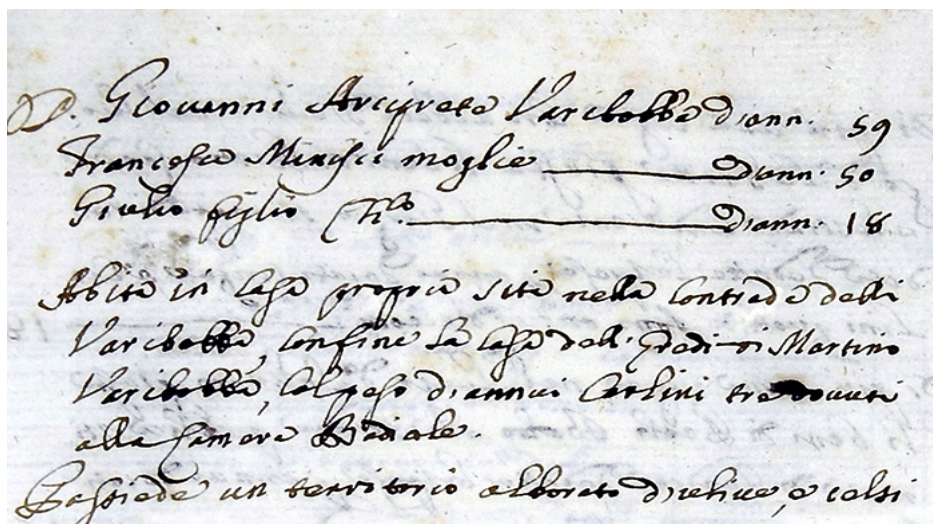 D. Giovanni Arciprete Varibobba d'ann. 59
Francesca Minisci moglie d'ann. 50
Giulio figlio d'ann. 18
Abita in casa propria sita nella contrada delli
Varibobba, confine la casa dell'Eredi di Martino
Varibobba, col peso d'annui Carlini tre dovuti
alla Camera Badiale.
Possiede un territorio alborato d'olive, e celsi